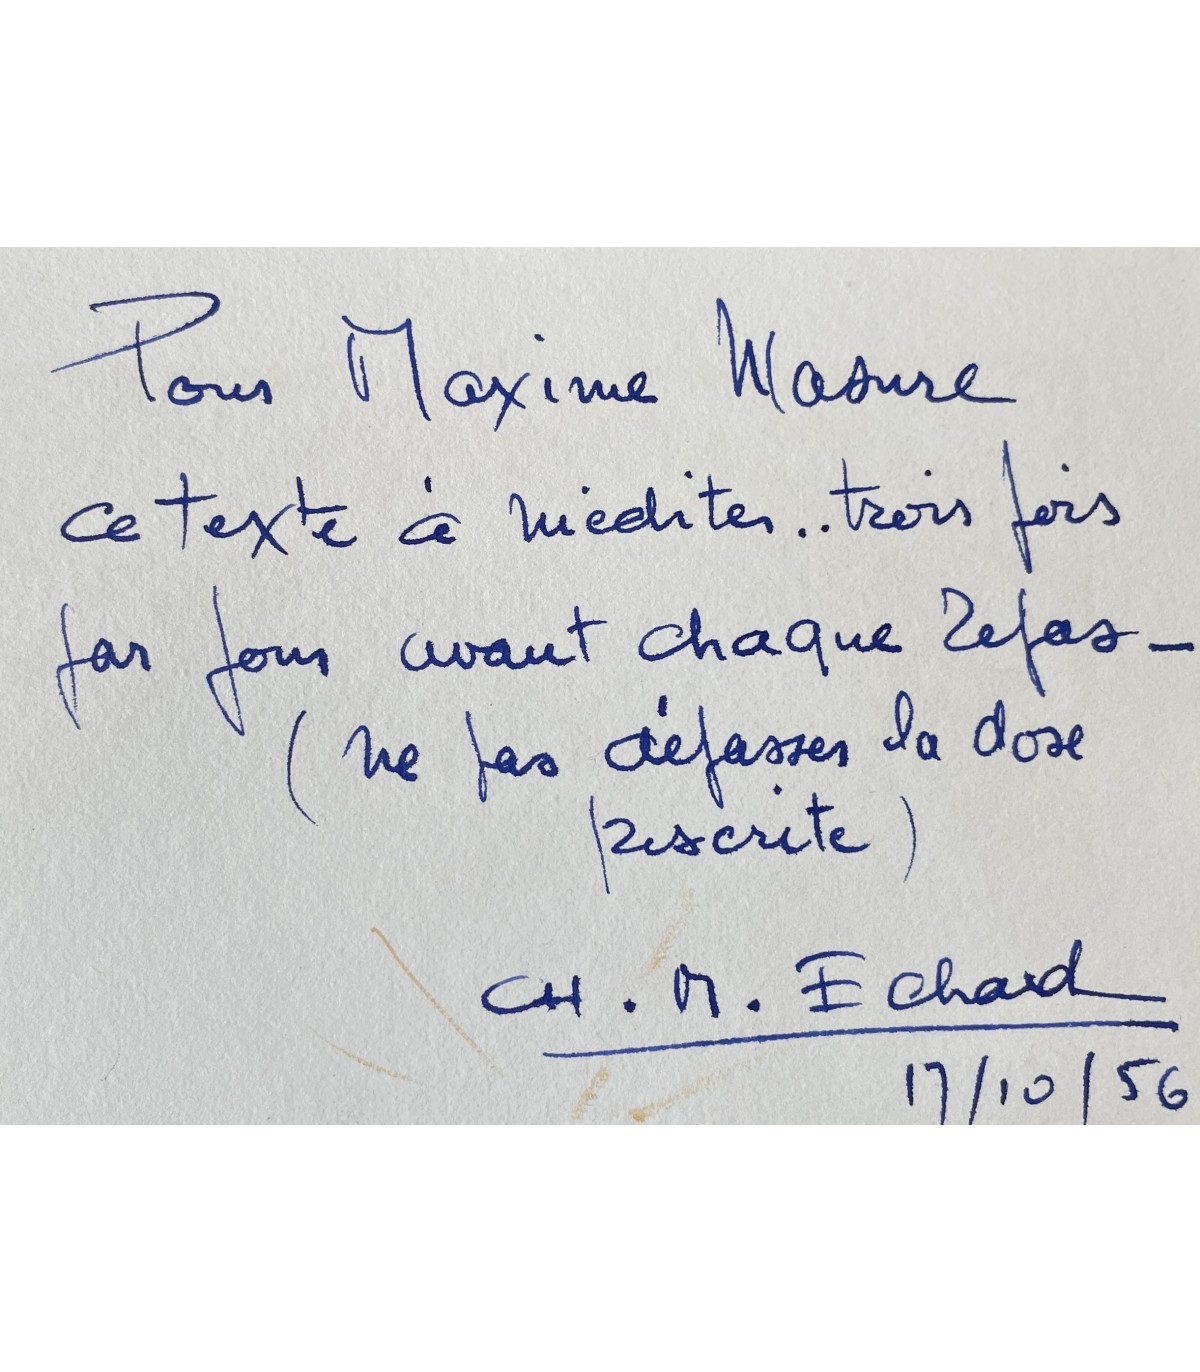 Pour Maxime Masure
ce texte à méditer.. trois fois
par jour avant chaque repas –
(ne pas dépasser la dose
prescrite)
CH. M. Echard
17/10/56